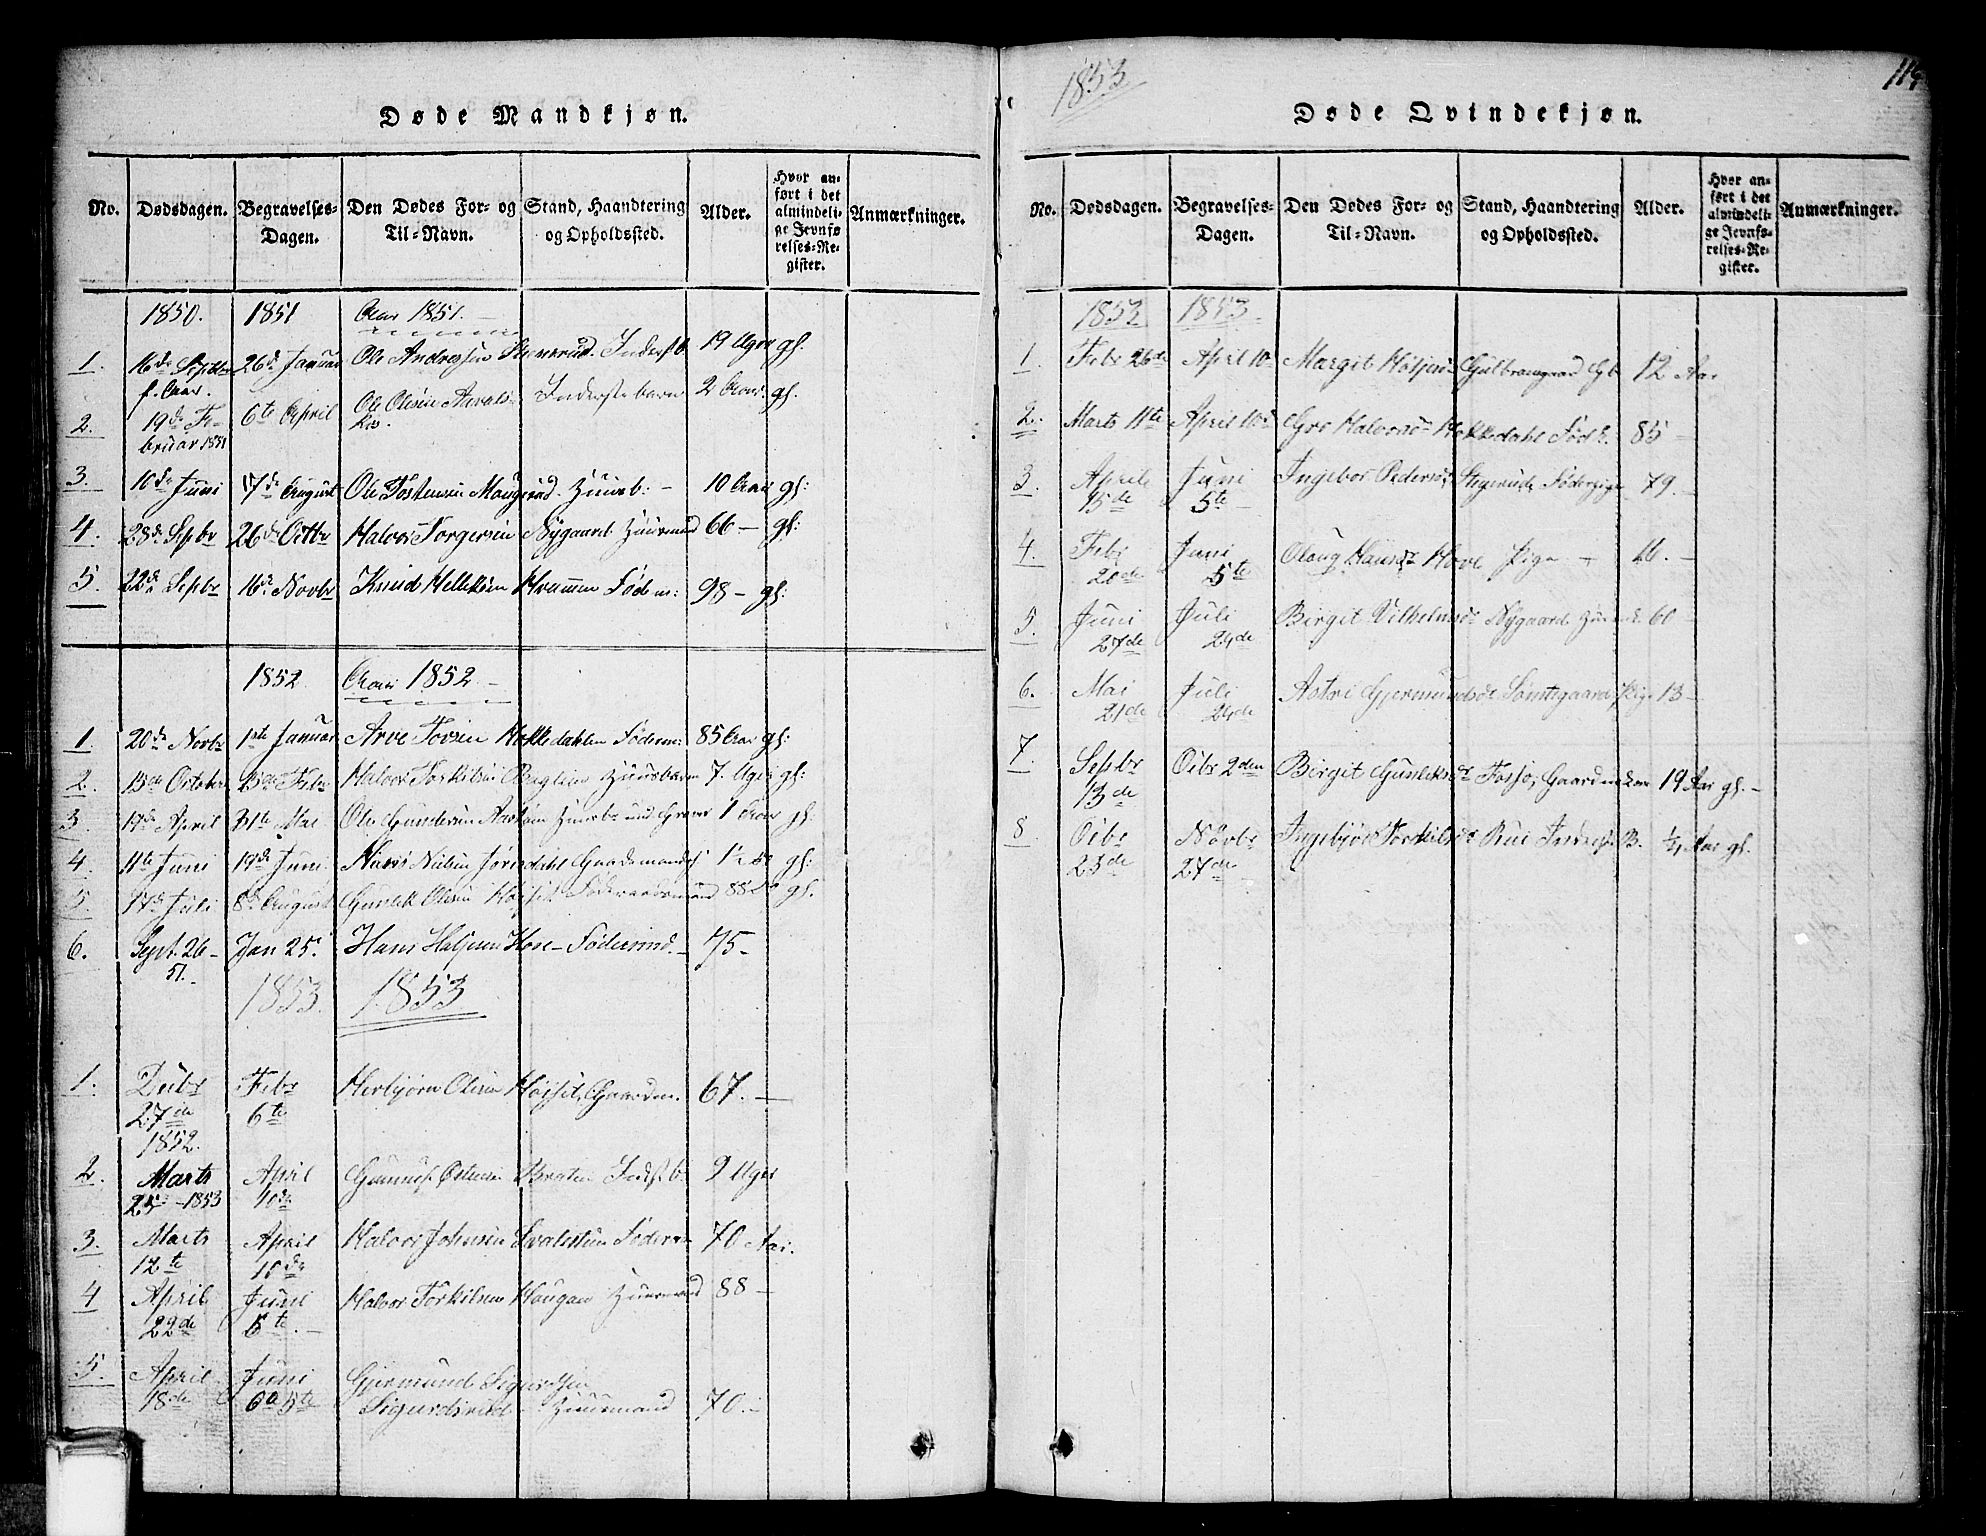 Døde Mandkjøn.
No. Dødsdagen. Begravelses-Dagen. Den Dødes For- og Til-Navn. Stand, Haandtering og Opholdssted. Alder. Hvor anført i det almindelige Jevnførelses-Register. Anmærkninger.
1850. 1851 Aar 1851.
1. 16de Septbr f. Aar. 26de Januar Ole Andersen Inderstb. 19 Uger gl.
2. 19de Februar 1851 6te April Ole Olsen Inderste barn 2 Aar. gl.
3. 10de Juni 17de August Ole Tostensen Huusb: 10 Aar gl:
4. 28de Sepbr 26de Octbr Halvor Torgersen Nygaard Huusmand 66 – gl:
5. 22de Sepbr 16de Novbr Knud Helleksen Føderm: 98 – gl:
1852 Aar 1852.
1 20de Novbr 1ste Januar Arve Tovsen Hokkedahlen Føderm: 85 Aar gl:
2. 15de October 15de Febr Halvor Torkilsen Huusbarn 7. Uger gl:
3. 17de April 31te Mai Ole Gundersen 1 Aar gl:
4. 11te Juni 19de Juni Nielsen Gaardmands 1½ gl:
5 17de Juli 8de August Gunlek Olsen Høiset Føderaadsmand 88 gl.
6. Sept. 26 – 51. Jan 25. Hans Halvorsen Hove – Føderaad. – 75 –
1853. 1853
1. Decbr 27de 1852. Febr 6te Herbjørn Olsen Høiset, Gaardm. 67. –
2. Marts 25de – 1853 April 10de Gunnuf Østensen Braten Indst.b. 9 Uger
3. Marts 12te April 10de Halvor Johnsen Føderm 70 Aar.
4 April 22de Juni 5te. – Halvor Torkilsen Haugan Huusmand 88 –
5. April 18de Juni 5te Gjermund Sigurdsen Sigurdsrud – Huusmand 70. –
1853
119
Døde Qvindekjøn.
No. Dødsdagen. Begravelses-Dagen. Den Dødes For- og Til-Navn. Stand, Haandtering og Opholdssted. Alder. Hvor anført i det almindelige Jevnførelses-Register. Anmærkninger.
1853 1853.
1 Febr 26de April 10de Margit 12 Aar
2. Marts 11te April 10de Gro Halvorsdr Hokkedahl Føds. 85 –
3. April 15de Juni 5te – Ingebor Pedersdr Stigerude 79. –
4. Febr 20de Juni 5te Olaug Hansdr Hove Pige – 16. –
5. Juni 27de Juli 24de Birgit Vilhelmsdr Nygaard 60 –
6. Mai 21de Juli 24de Astri Gjermundsdr Pige 13 –
7 Sepbr 13de Octbr 2den Birgit Gunleksdr Fosso, 19 Aar gl. –
8 Octbr 23de Novbr 27de Ingebjør Torkilsdr Rue Inderst. B. ¼ Aar gl.